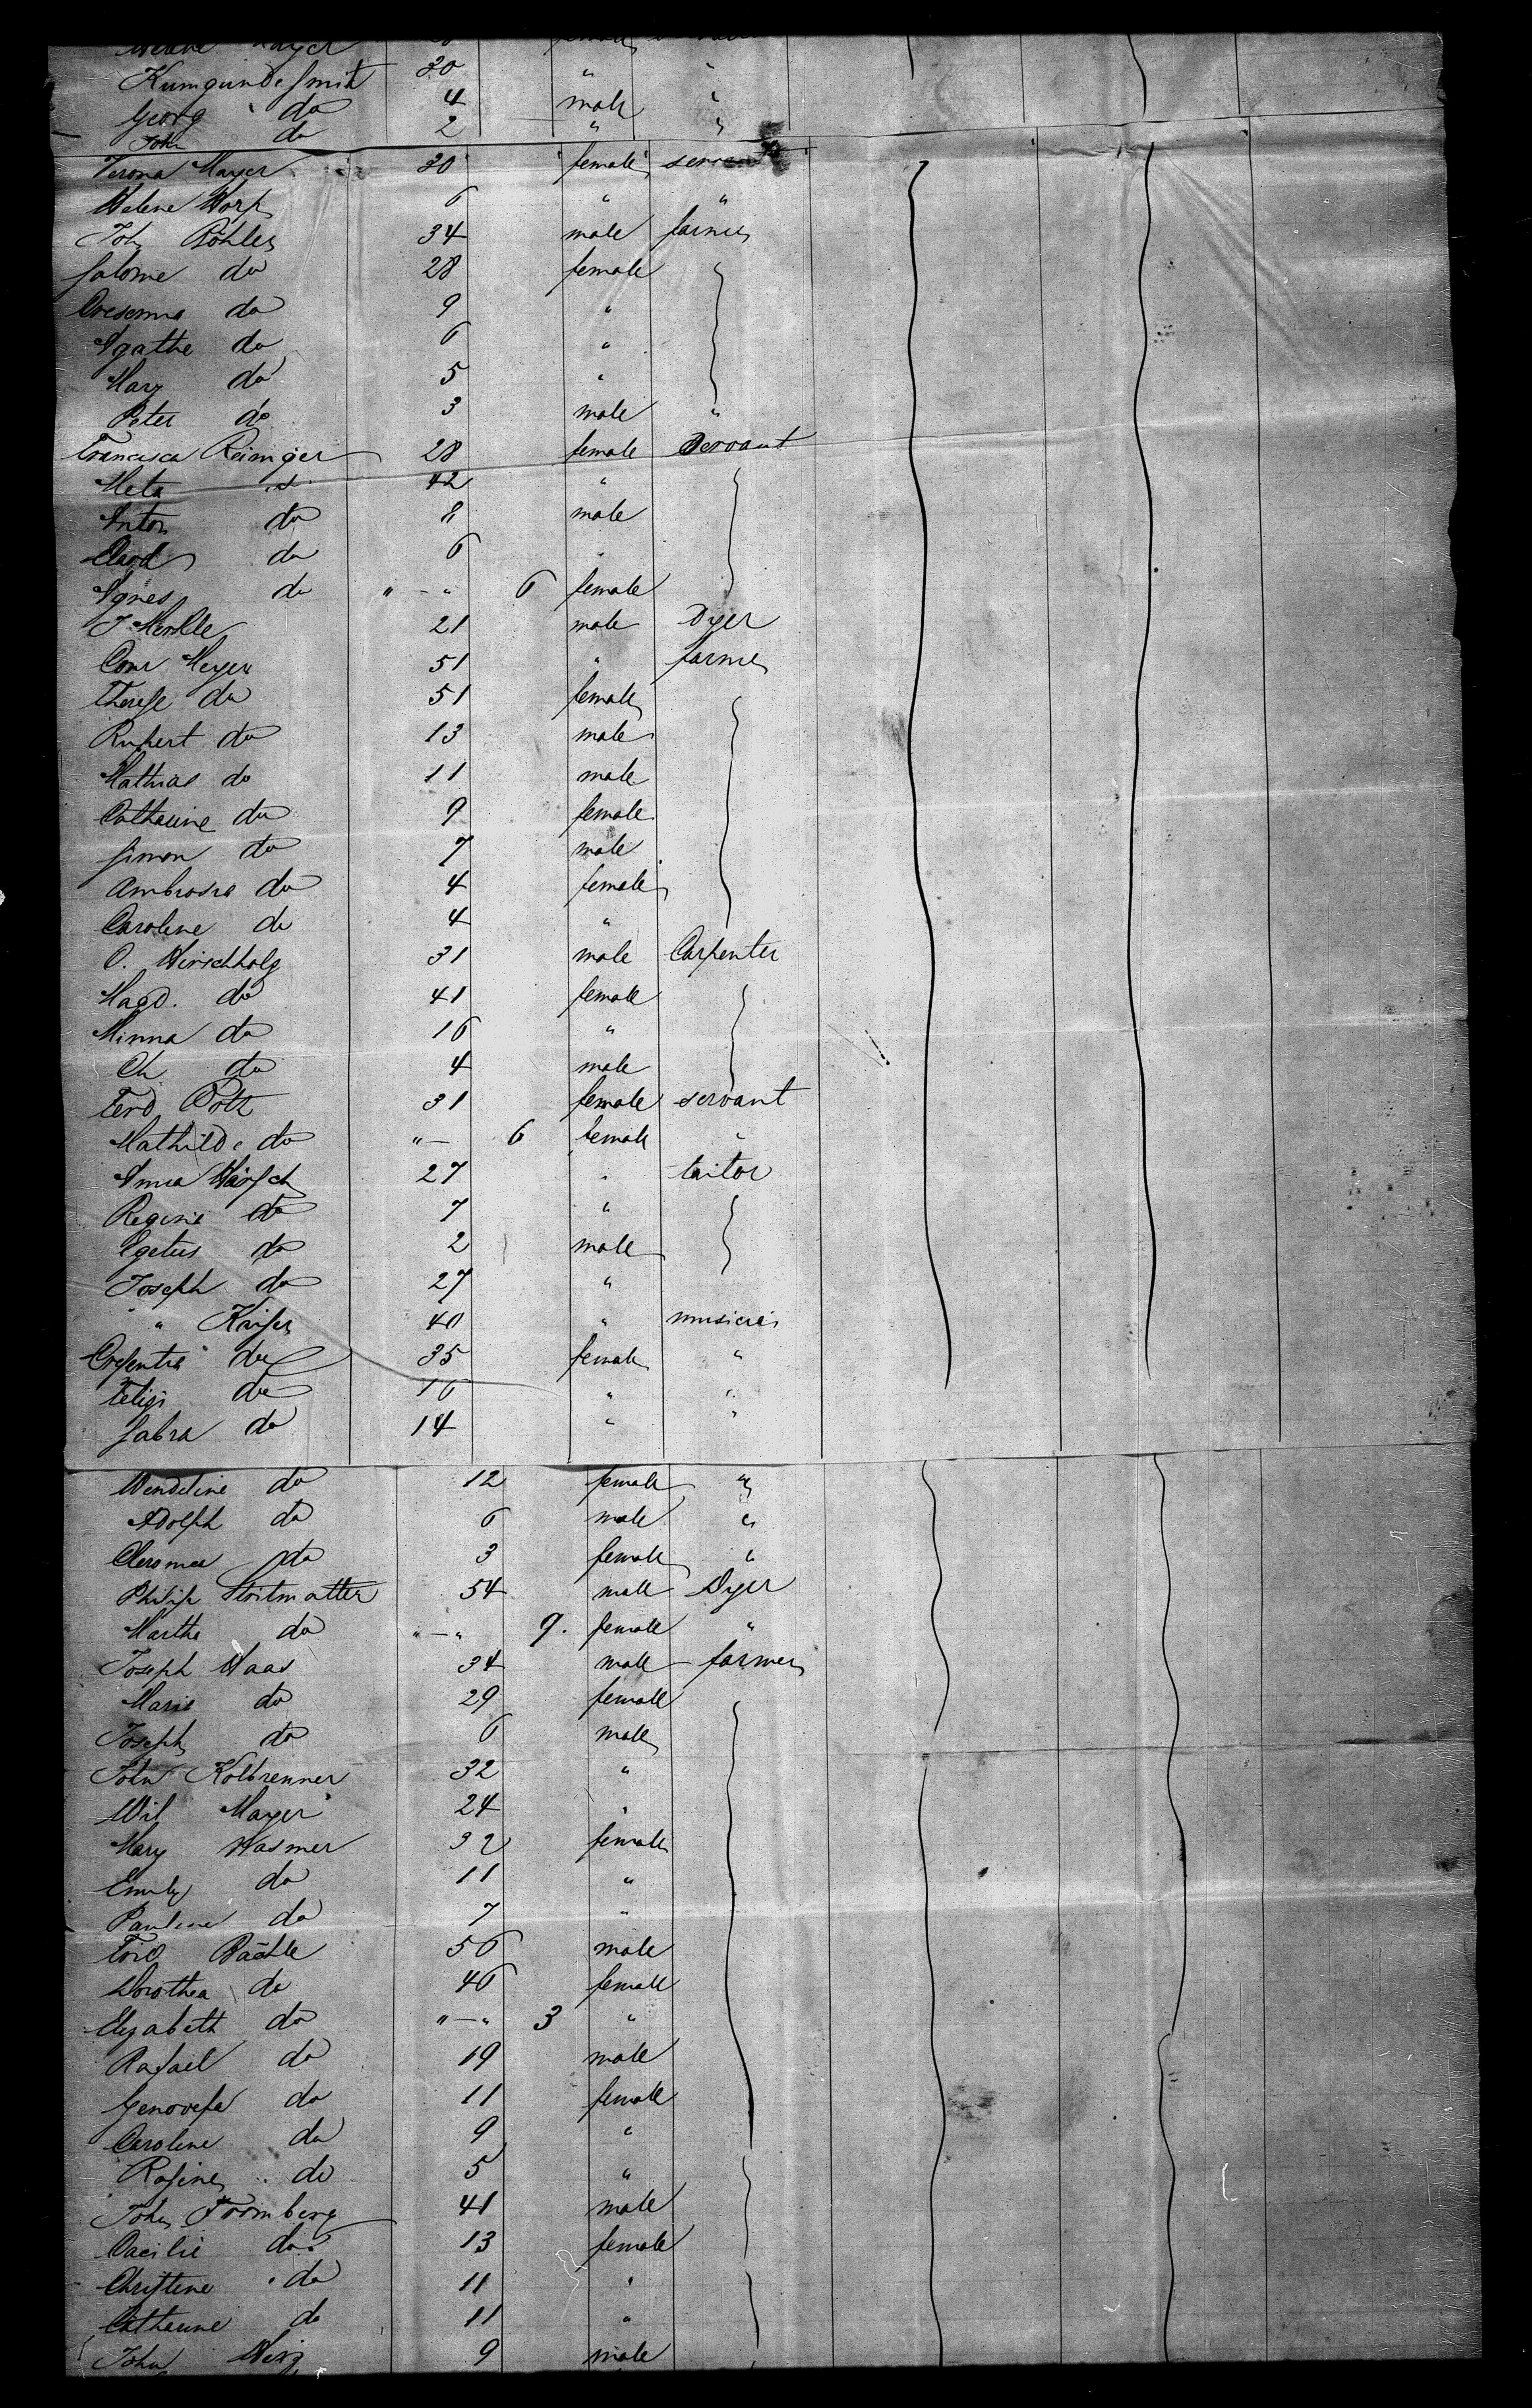 Mayer 20 female
Kumgunde Smit 30 " "
Georg do 4 male "
John do 2 " "
Verona Mayer 30 female servant
Helene Worf 6 " "
Joh Böhler 34 male farmer
Salome do 28 female
Cresenna do 9 "
Agathe do 6 "
Mary do 5 "
Peter do 3 male "
Francisca Reimger 28 female Servant
Meta do 42 "
Anton do 8 male
Card do 6 "
Agnes do " - " 6 female
J Merkle 21 male Dyer
Conr Meyer 51 " farmer
Therese do 51 female
Rupert do 13 male
Mathias do 11 male
Catharine do 9 female
Simon do 7 male
Ambrosia do 4 female
Caroline do 4 "
O. Hirschholz 31 male Carpenter
Magd. do 41 female
Minna do 16 "
Ch do 4 male
Ferd Roth 31 female servant
Mathilde do " - 6 female "
Anna Hirsch 27 " taitor
Regine do 7 "
Agetus do 2 male
Joseph do 27 "
" Kaiser 40 " musicia
Cresentia do 35 female "
Feligi do 16 " "
Sabra do 14 " "
Wendeline do 12 female "
Adolph do 6 male "
Cleromea do 3 female "
Philip Stritmatter 54 male Dyer
Martha do " - " 9. female "
Joseph Haas 34 male farmer
Marie do 29 female
Joseph do 6 male
John Kolbrenner 32 "
Wil Mayer 24 "
Mary Wasmer 32 female
Emily do 11 "
Pauline do 7 "
Frid Bächle 56 male
Dorothea do 46 female
Elizabeth do " - " 3 "
Rafael do 19 male
Genovefa do 11 female
Caroline do 9 "
Rosine do 5 "
John Fromberg 41 male
Cacilie do 13 female
Christine do 11 "
Catharine do 11 "
John 9 male